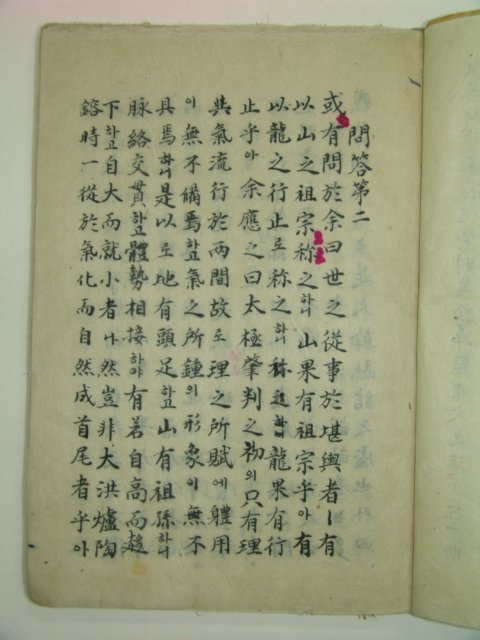 問答第二
或有問於余曰世之從事於堪輿者ㅣ有
以山之祖宗称之하니山果有祖宗乎아有
以龍之行止로称之하니称하니龍果有行
止乎아余應之曰太極肇判之初의只有理
與氣流行於两間故로理之所賦에軆用
이無不備焉하고氣之所鍾의形象이無不
具焉하니是以로地有頭足하고山有祖孫하니
脉絡交貫하고體勢相接하야有若自高而趍
下하고自大而就小者나然豈非大洪爐陶
鎔時一從於氣化而自然成首尾者乎아